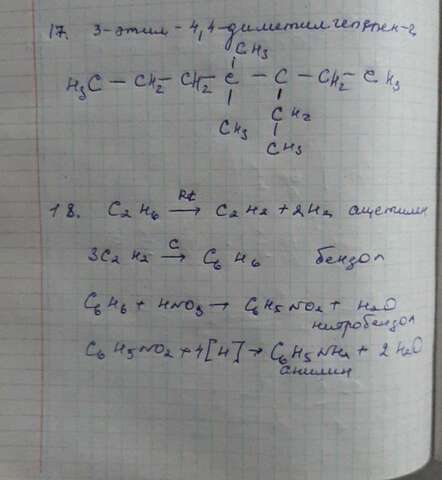 17. 3-этил-4,4-диметилгептен-2
CH3
H3C - CH2 - CH2 - C - C - CH2 - CH3
CH3 CH2
CH3
18. C2H6 → C2H2 + 2H2 ацетилен
3C2H2 →C C6H6 бензол
C6H6 + HNO3 → C6H5NO2 + H2O
нитробензол
C6H5NO2 + 4[H] → C6H5NH2 + 2H2O
анилин